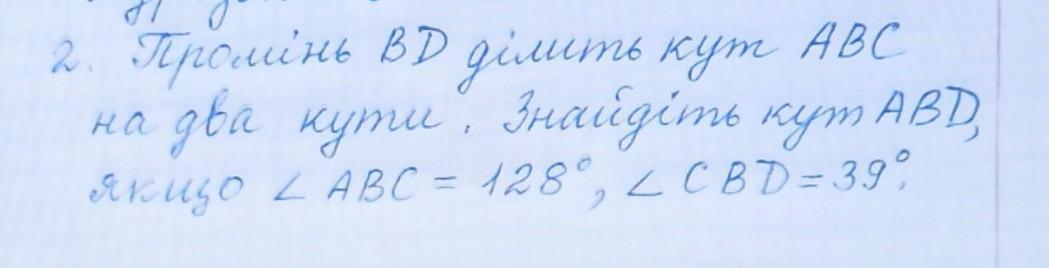 2. Промінь BD ділить кут ABC
на два кути. Знайдіть кут ABD,
якщо ∠ ABC = 128°, ∠ CBD = 39°.